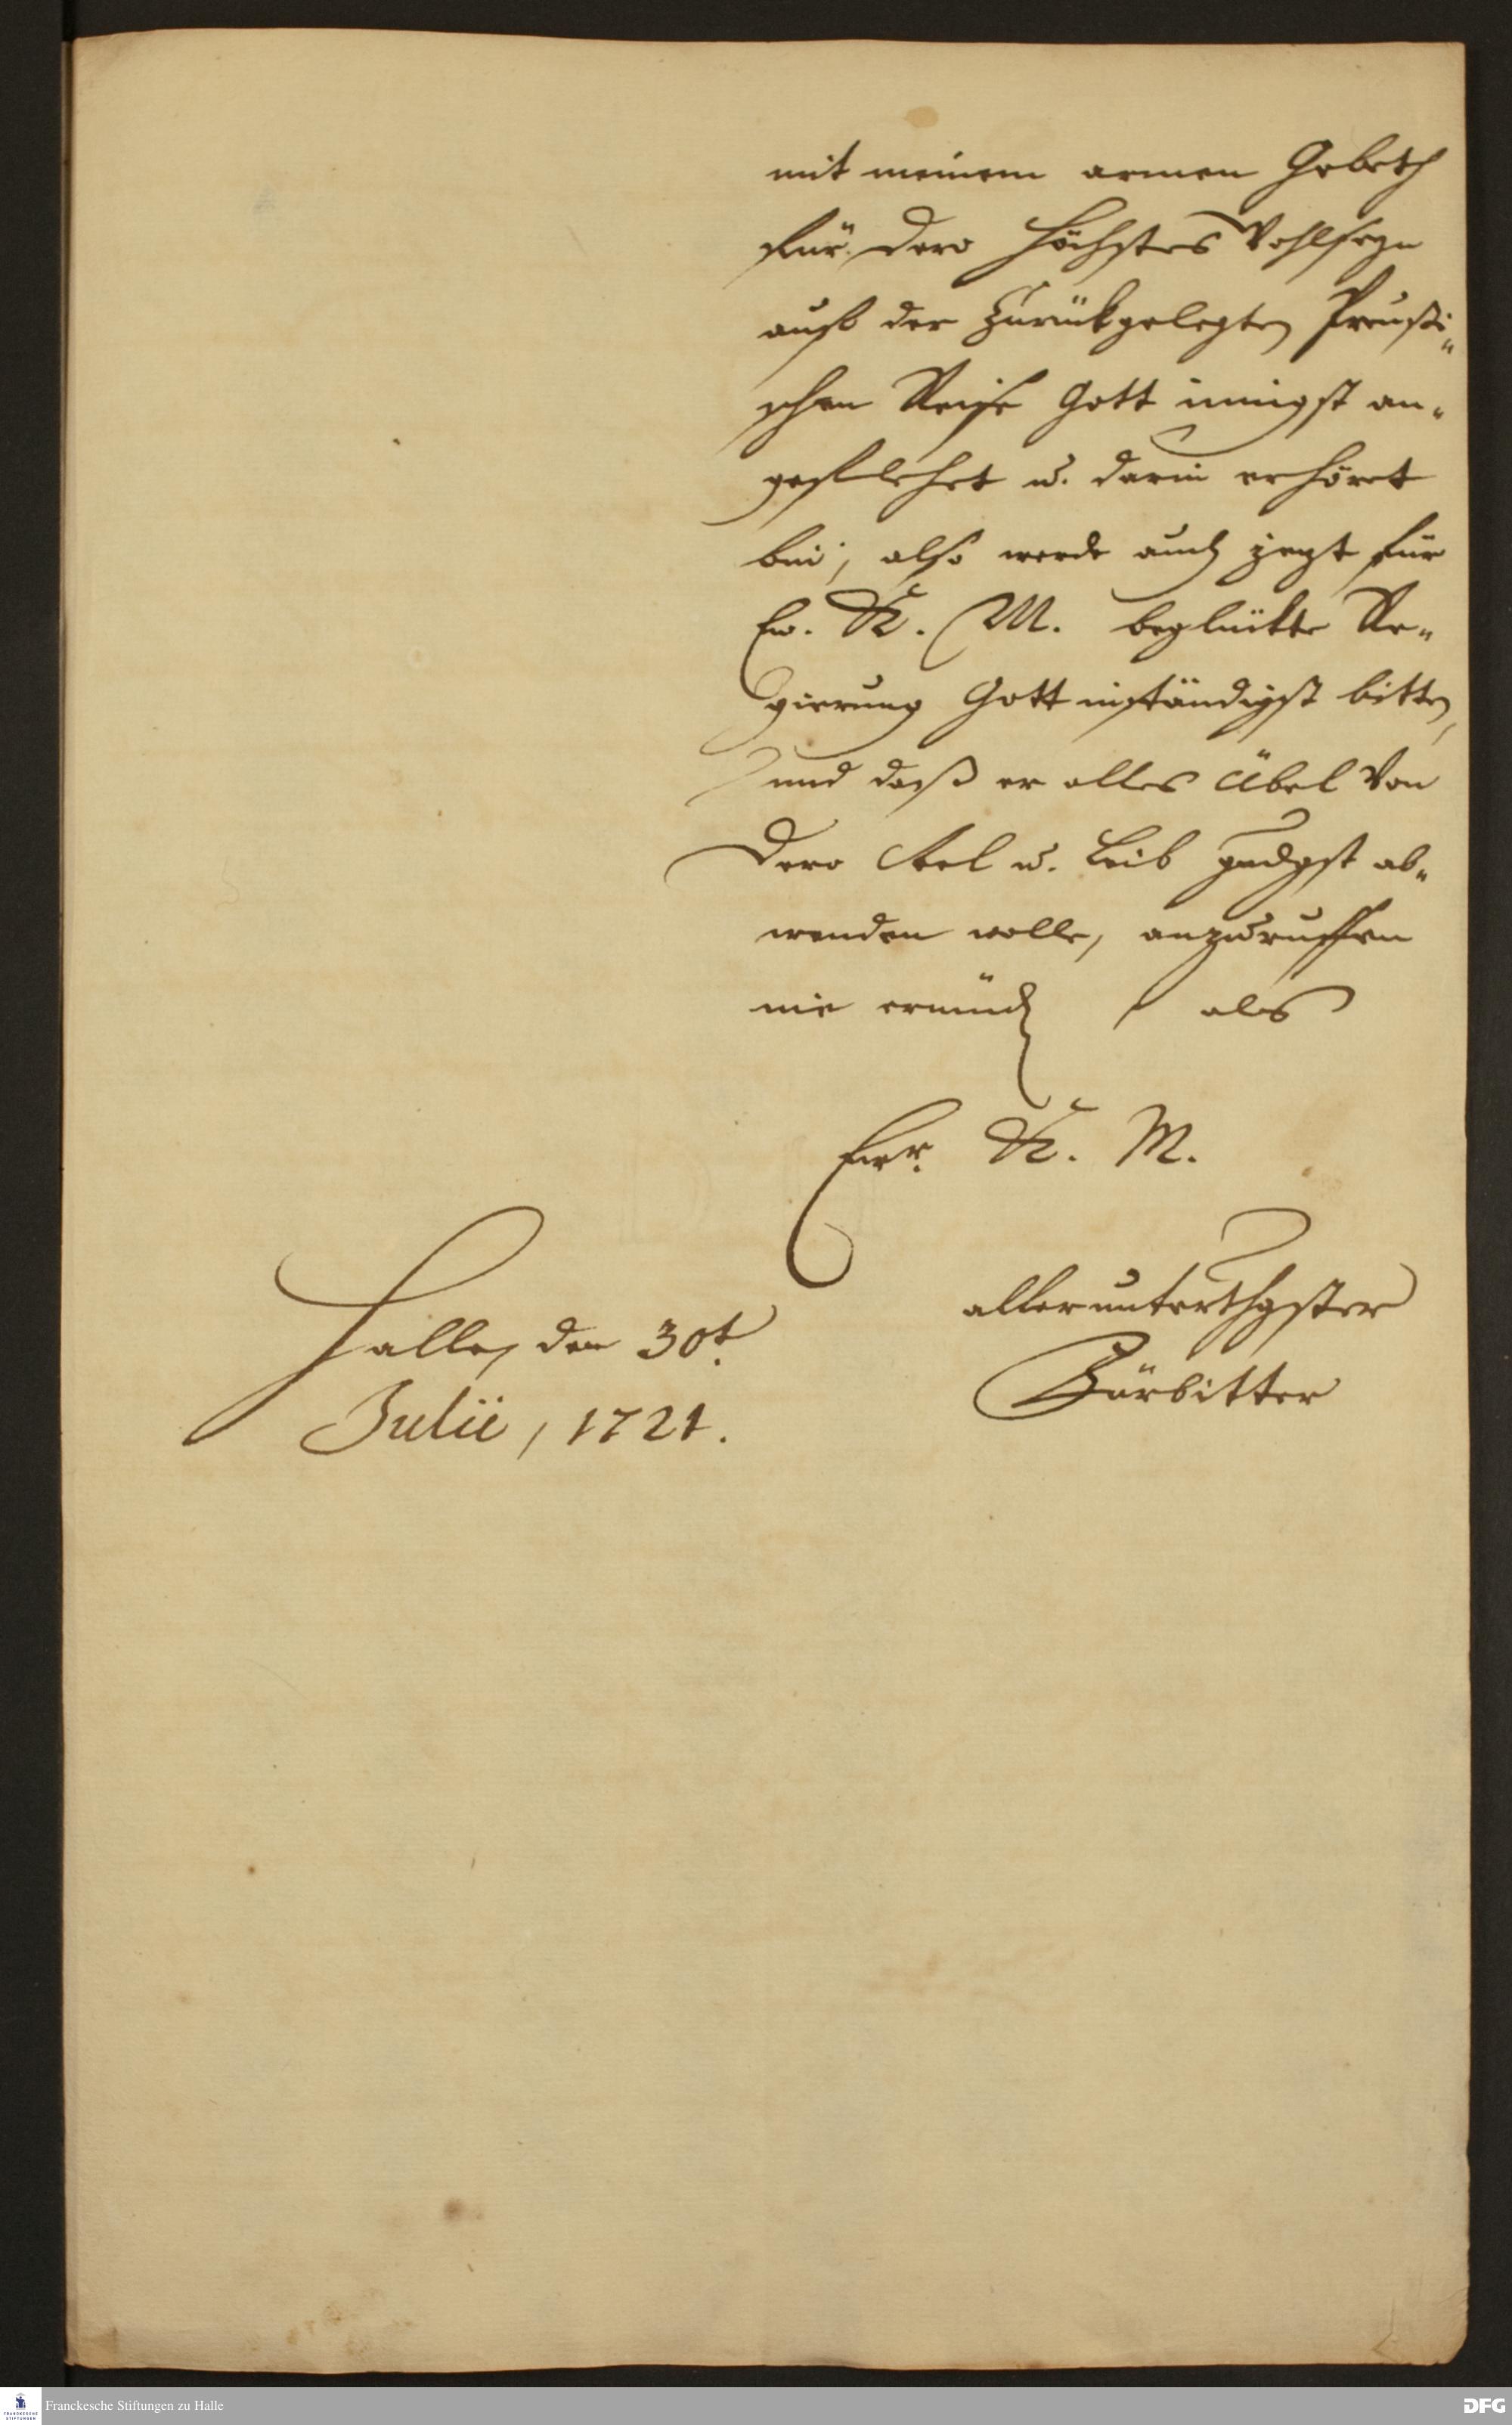 mit meinem armen Gebeth
für Dero höchstes Wohlseyn
auß der zurückgelegten Preußi„
schen Reise Gott innigst an„
geflehet u. darin erhöret
bin, also werde auch jezt für
Ew. K. M. beglückte Re„
gierung Gott inständigst bitten,
und daß er alles Übel von
Dero Seel u. Leib gndgst ab„
wenden wolle, anzuruffen
nie ermüden, als
Ewr. K. M.
allerunterthgster
Fürbitter
Halle, den 30t.
Julii, 1721.
Franckesche Stiftungen zu Halle
DFG